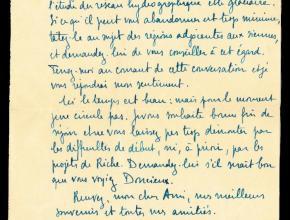 l'étude du réseau hydrographique et le glaciaire.
Si ce qu'il peut vous abandonner est trop minime,
tâtez-le au sujet des régions adjacentes aux siennes,
et demandez-lui de vous conseiller à cet égard.
Tenez-moi au courant de cette conversation et je
vous répondrai mon sentiment.
Ici le temps est beau ; mais pour le moment
je ne circule pas. Je vous souhaite bonne fin de
séjour et ne vous laissez pas trop démonter par
les difficultés de début, ni, à priori, par les
projets de Riche. Demandez-lui s'il serait bon
que vous voyiez Doncieux.
Recevez, mon cher Ami, nos meilleurs
souvenirs et toutes nos amitiés.